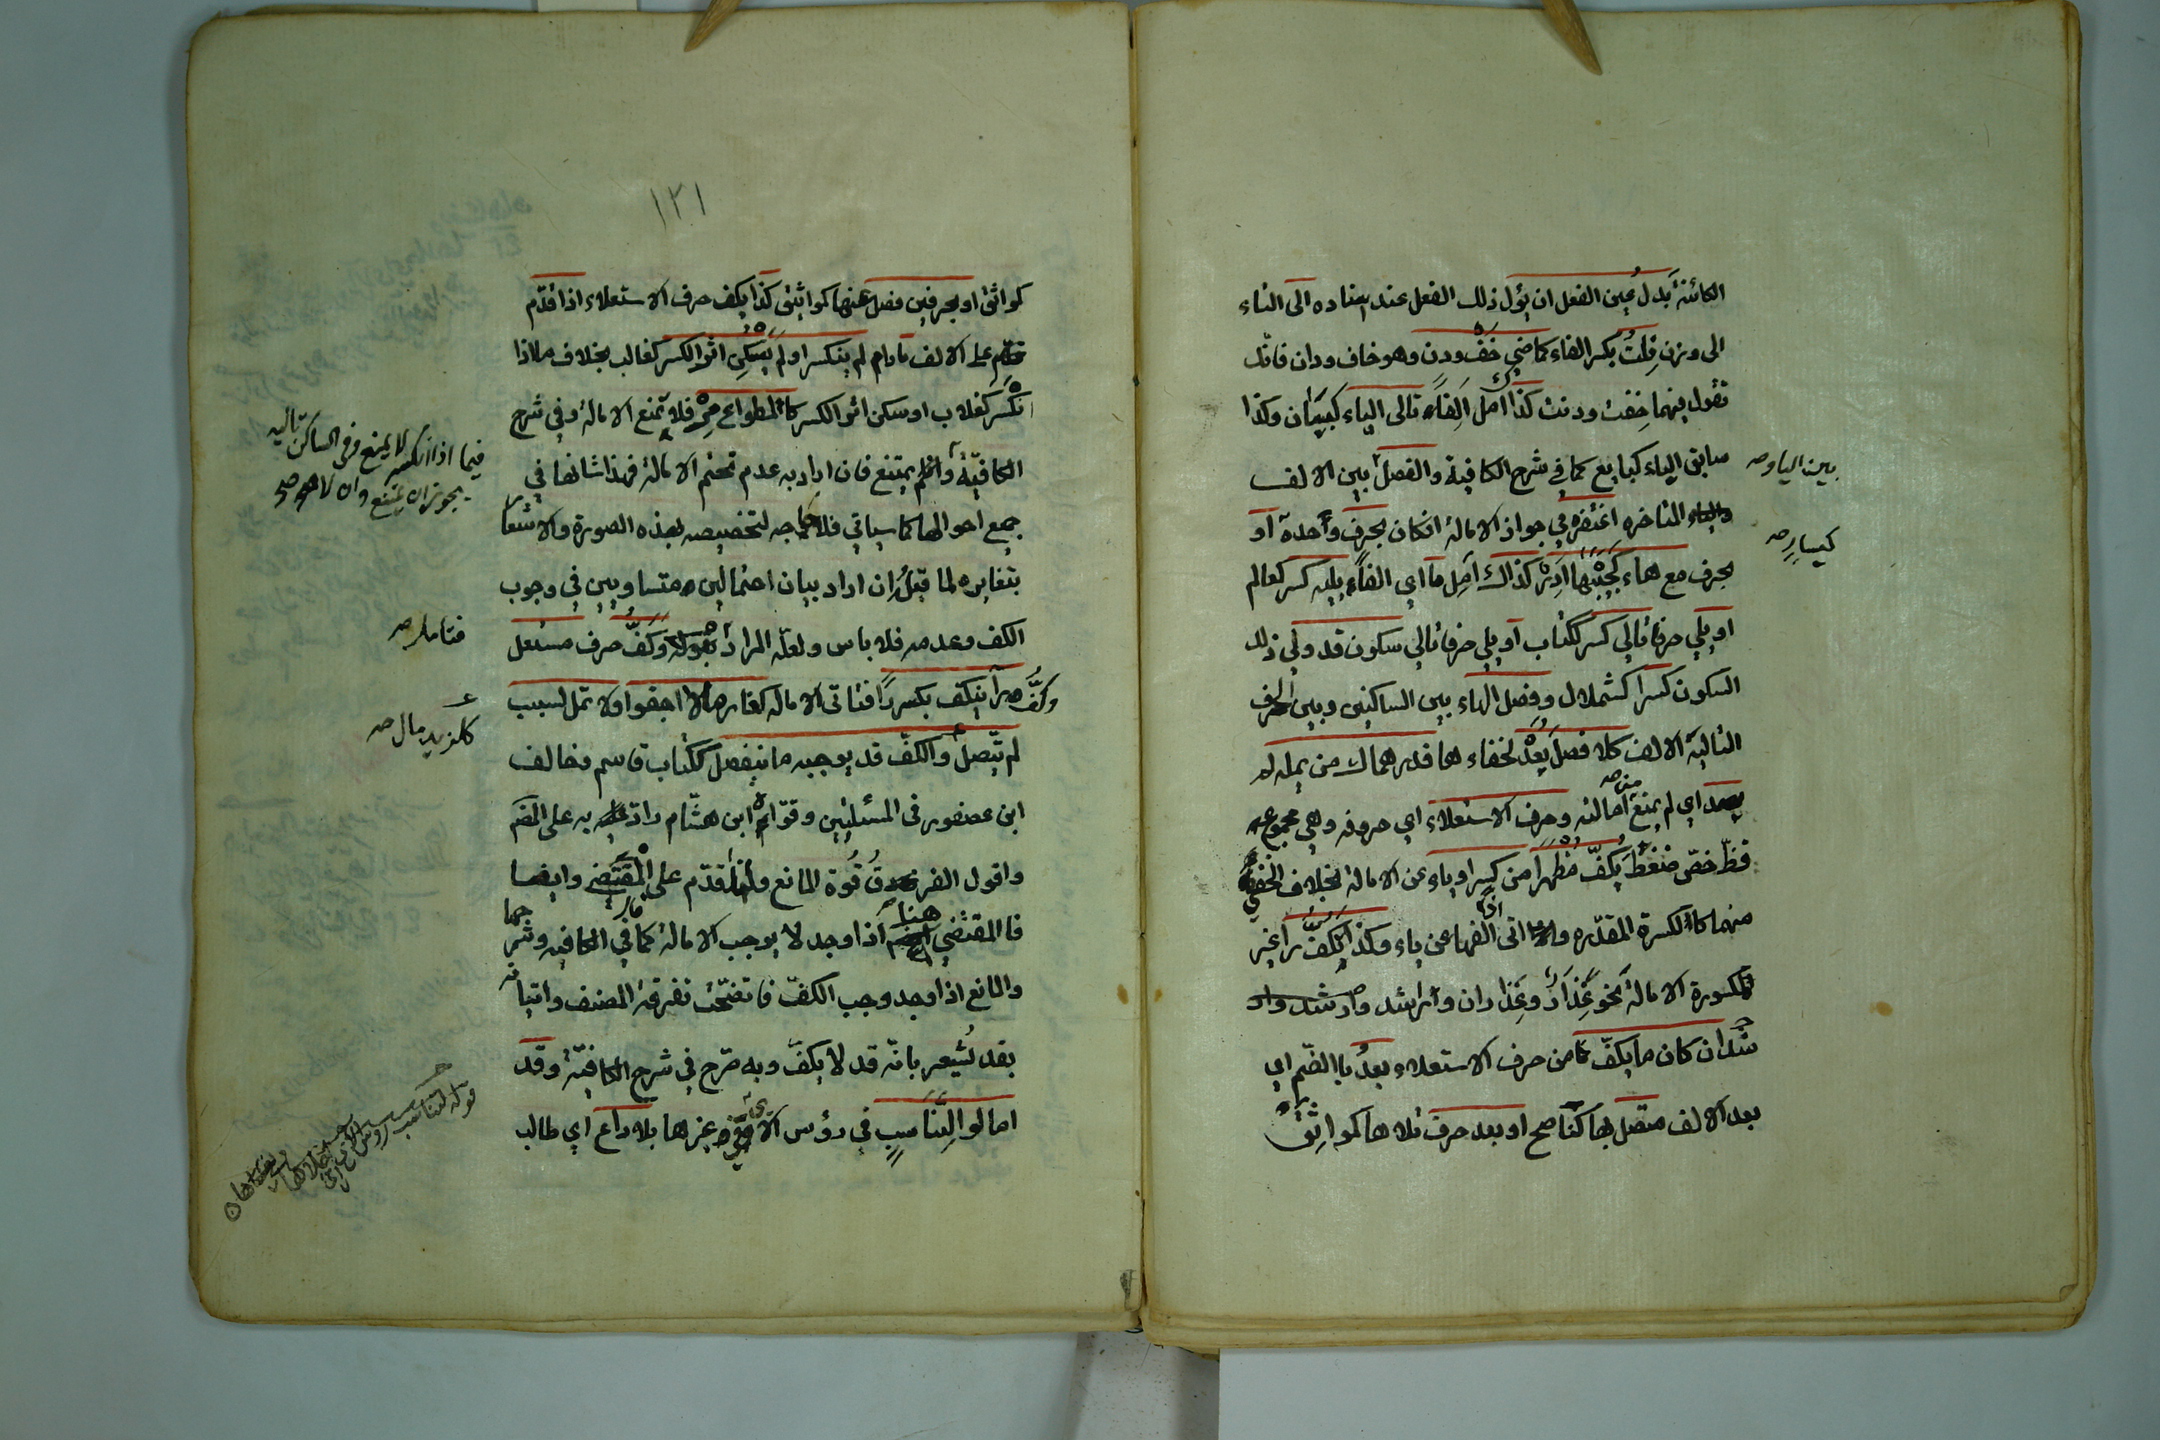 الكائنة بدل عين الفعل ان يؤل ذلك الفعل عند اسناده الى التاء
الى وزن فلت بكسر الفاء كماضي خف ودن وهو خاف ودان فانك
تقول فيهما خفت ودنت كذاك امل الفاء تالى الياء كبيان وكذا
سابق الياء كبايع كما في شرح الكافية والفصل بين الالف
بين الياء صح
والياء المتاخره اغتفر في جواز الامالة ان كان بحرف واحدة او
كيسار صح
بحرف مع هاء كجيبها ادر كذاك امل ما اي الفاء يليه كسر كعالم
او يلي حرفا تالي كسر ككتاب او يلي حرفا تالي سكون قد ولي ذلك
السكون كسرا كشملال وفصل الهاء بين الساكنين وبين الحرف
التالية الالف كلا فصل يعد لخفاءها فدرهماك من يمله لم
يصد اي لم يمنع من امالته وحرف الاستعلاء اي حروفه وهي مجموعه
قظ خص ضغط يكف مظهرا من كسر او ياء عن الامالة بخلاف الخفي
منهما كالكسرة المقدره والتى الفها عن ياء وكذا تكف را غير
مكسورة الامالة نحو عذار وعذاران وراشد
ان كان ما يكف من حرف الاستعلاء بعد بالضم اي
بعد الالف متصل بها كناصح او بعد حرف تلاها كمواثق
١٢١
كواثق او بحرفين فصل عنها كمواثيق كذا يكف حرف الاستعلاء اذا قدم
على الالف مادام لم ينكسر او لم يسكن اثر الكسر كغالب بخلاف ما اذا
انكسر كغلاب او سكن اثر الكسر كالمطواع مر فلا تمنع الامالة وفي شرح
الكافية يمتنع فان اراد به عدم تحتم الامالة فهذا شانها في
فيما اذا انكسر لا يمنع وفي الساكن تاليه
يجوز ان يمتنع وان لا صح
جميع احوالها كما سياتي فلا حاجه لتخصيصه بهذه الصورة والاشعار
بتغايره لما قبل ان اراد بيان احتمالين متساويين في وجوب
الكف وعدمه فلا باس ولعله المراد بقوله وكف حرف مستعل
فتامل صح
وكف را ينكف بكسر را فتاتى الاماله كغارم لا اجفو ولا تمل لسبب
لم يتصل والكف قد يوجبه ما ينفصل ككتاب قاسم وخالف
كلزيد مال صح
ابن عصفور في المسئلتين وقواه ابن هشام رادا به على المصنف
واقول الفرق قوة المانع ولهذا قدم على المقتضي وايضا
فالمقتضي هنا اذا وجد لا يوجب الامالة كما في الكافيه وشرحها
والمانع اذا وجد وجب الكف فاتضحت تفرقة المصنف واتيانه
بقد تشعر بانه قد لا يكف وبه صرح في شرح الكافية وقد
امالوا لتناسب في رؤس الآي وغيرها بلا داع اي طالب
قوله لتناسب